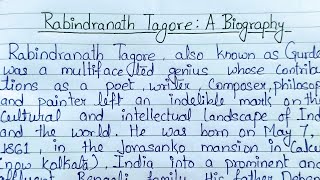 Rabindranath Tagore: A Biography
Rabindranath Tagore, also known as Gurde
was a multifaceted genius whose contribu
tions as a poet, writer, composer, philosop
and painter left an indelible mark on the
cultural and intellectual landscape of Ind
and the world. He was born on May 7,
1861, in the Jorasanko mansion in Calcu
(now Kolkata), India into a prominent and
affluent Bengali family. His father Deben